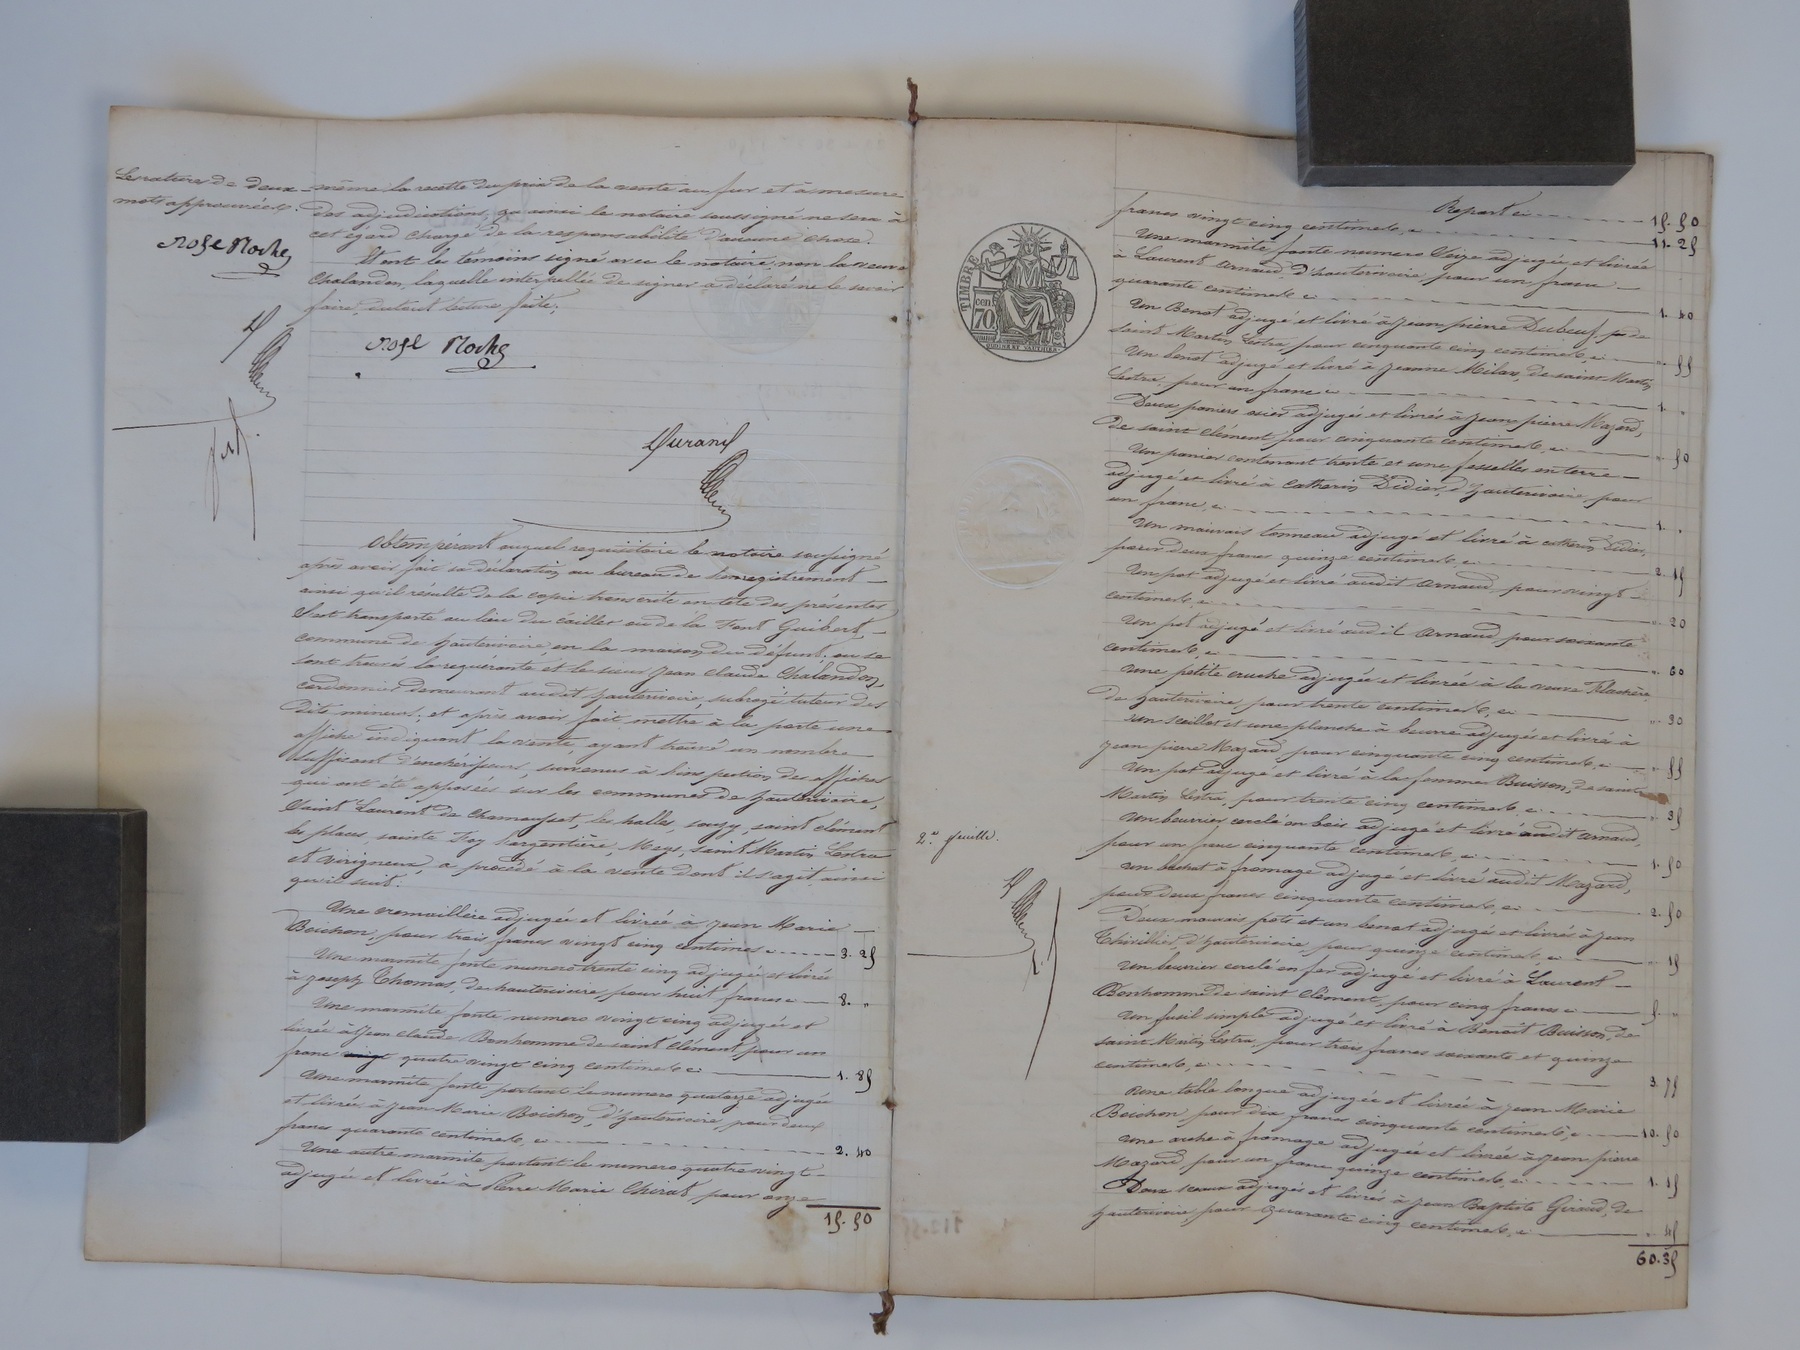 Les ratures de deux
mots approuvées.
Rose Roche
même la recette du prix de la vente au fur et à mesure
des adjudications, qu'ainsi le notaire soussigné ne sera à
cet égard chargé de la responsabilité d'aucune chose.
Et ont les témoins signé avec le notaire, non la veuve
Chalandon, laquelle interpellée de signer a déclaré ne le savoir
faire, du tout lecture faite.
Rose Roche
Durand
Obtempérant auquel requisitoire le notaire soussigné
après avoir fait sa déclaration au bureau de l'enregistrement
ainsi qu'il résulte de la copie transcrite en tête des présentes
s'est transporté au lieu du Caillet ou de la Font Guibert,
commune de hauterivoire, en la maison du défunt, où se
sont trouvés la requérante et le sieur Jean Claude Chalandon,
cordonnier demeurant audit hauterivoire, subrogé tuteur des
dits mineurs, et après avoir fait mettre à la porte une
affiche indiquant la vente, ayant trouvé un nombre
suffisant d'enchérisseurs, survenus à l'inspection des affiches
qui ont été apposées sur les communes de hauterivoire,
Saint Laurent de Chamousset, les halles, souzy, saint clément
les places, sainte Foy l'argentière, Meys, saint Martin Lestra
et virigneux, a procédé à la vente dont il s'agit, ainsi
qu'il suit.
Une cremaillère adjugée et livrée à Jean Marie
Bouchon, pour trois francs vingt cinq centimes 3. 25
Une marmite fonte numero trente cinq adjugée et livrée
à Joseph Thomas, de hauterivoire, pour huit francs 8. "
Une marmite fonte numero vingt cinq adjugée et
livrée à Jean claude Bonhomme de saint clément pour un
franc vingt quatre vingt cinq centimes 1. 85
Une marmite fonte portant le numero quatorze adjugée
et livrée à Jean Marie Bouchon, d'hauterivoire, pour deux
francs quarante centimes 2. 40
Une autre marmite portant le numero quatre vingt
adjugée et livrée à Pierre Marie Chirat, pour onze
15. 50
TIMBRE
cen
70
Report 15. 50
francs vingt cinq centimes 11. 25
Une marmite fonte numero seize adjugée et livrée
à Laurent Arnaud, d'hauterivoire, pour un franc
quarante centimes 1. 40
Un Benot adjugé et livré à Jean pierre Dubeuf, de
saint Martin Lestra, pour cinquante cinq centimes ". 55
Un benot adjugé et livré à Jeanne Milan, de saint Martin
Lestra, pour un franc 1. "
Deux paniers osier adjugés et livrés à Jean pierre Mazard,
de saint clément pour cinquante centimes ". 50
Un panier contenant trente et une fesselles en terre
adjugé et livré à Catherin Didier, d'hauterivoire, pour
un franc 1. "
Un mauvais tonneau adjugé et livré à catherin Didier,
pour deux francs quinze centimes 2. 15
Un pot adjugé et livré audit Arnaud, pour vingt
centimes ". 20
Un pot adjugé et livré audit Arnaud, pour soixante
centimes ". 60
Une petite cruche adjugée et livrée à la veuve
de hauterivoire, pour trente centimes ". 30
Un seillot et une planche à beurre adjugés et livré à
Jean pierre Mazard, pour cinquante cinq centimes ". 55
Un pot adjugé et livré à la femme Buisson, de saint
Martin Lestra, pour trente cinq centimes ". 35
Un beurrier cerclé en bois adjugé et livré audit Arnaud,
pour un franc cinquante centimes 1. 50
Un bachat à fromage adjugé et livré audit Mazard,
pour deux francs cinquante centimes 2. 50
Deux mauvais pots et un benot adjugés et livrés à Jean
Thivillier, d'hauterivoire, pour quinze centimes ". 15
Un beurrier cerclé en fer adjugé et livré à Laurent
Bonhomme de saint clément, pour cinq francs 5. "
Un fusil simple adjugé et livré à Benoît Buisson, de
saint Martin Lestra, pour trois francs soixante et quinze
centimes 3. 75
Une table longue adjugée et livrée à Jean Marie
Bouchon, pour dix francs cinquante centimes 10. 50
Une arche à fromage adjugée et livrée à Jean pierre
Mazard, pour un franc quinze centimes 1. 15
Deux seaux adjugés et livrés à Jean Baptiste Giraud, de
hauterivoire, pour quarante cinq centimes ". 45
60. 35
2.e feuille.